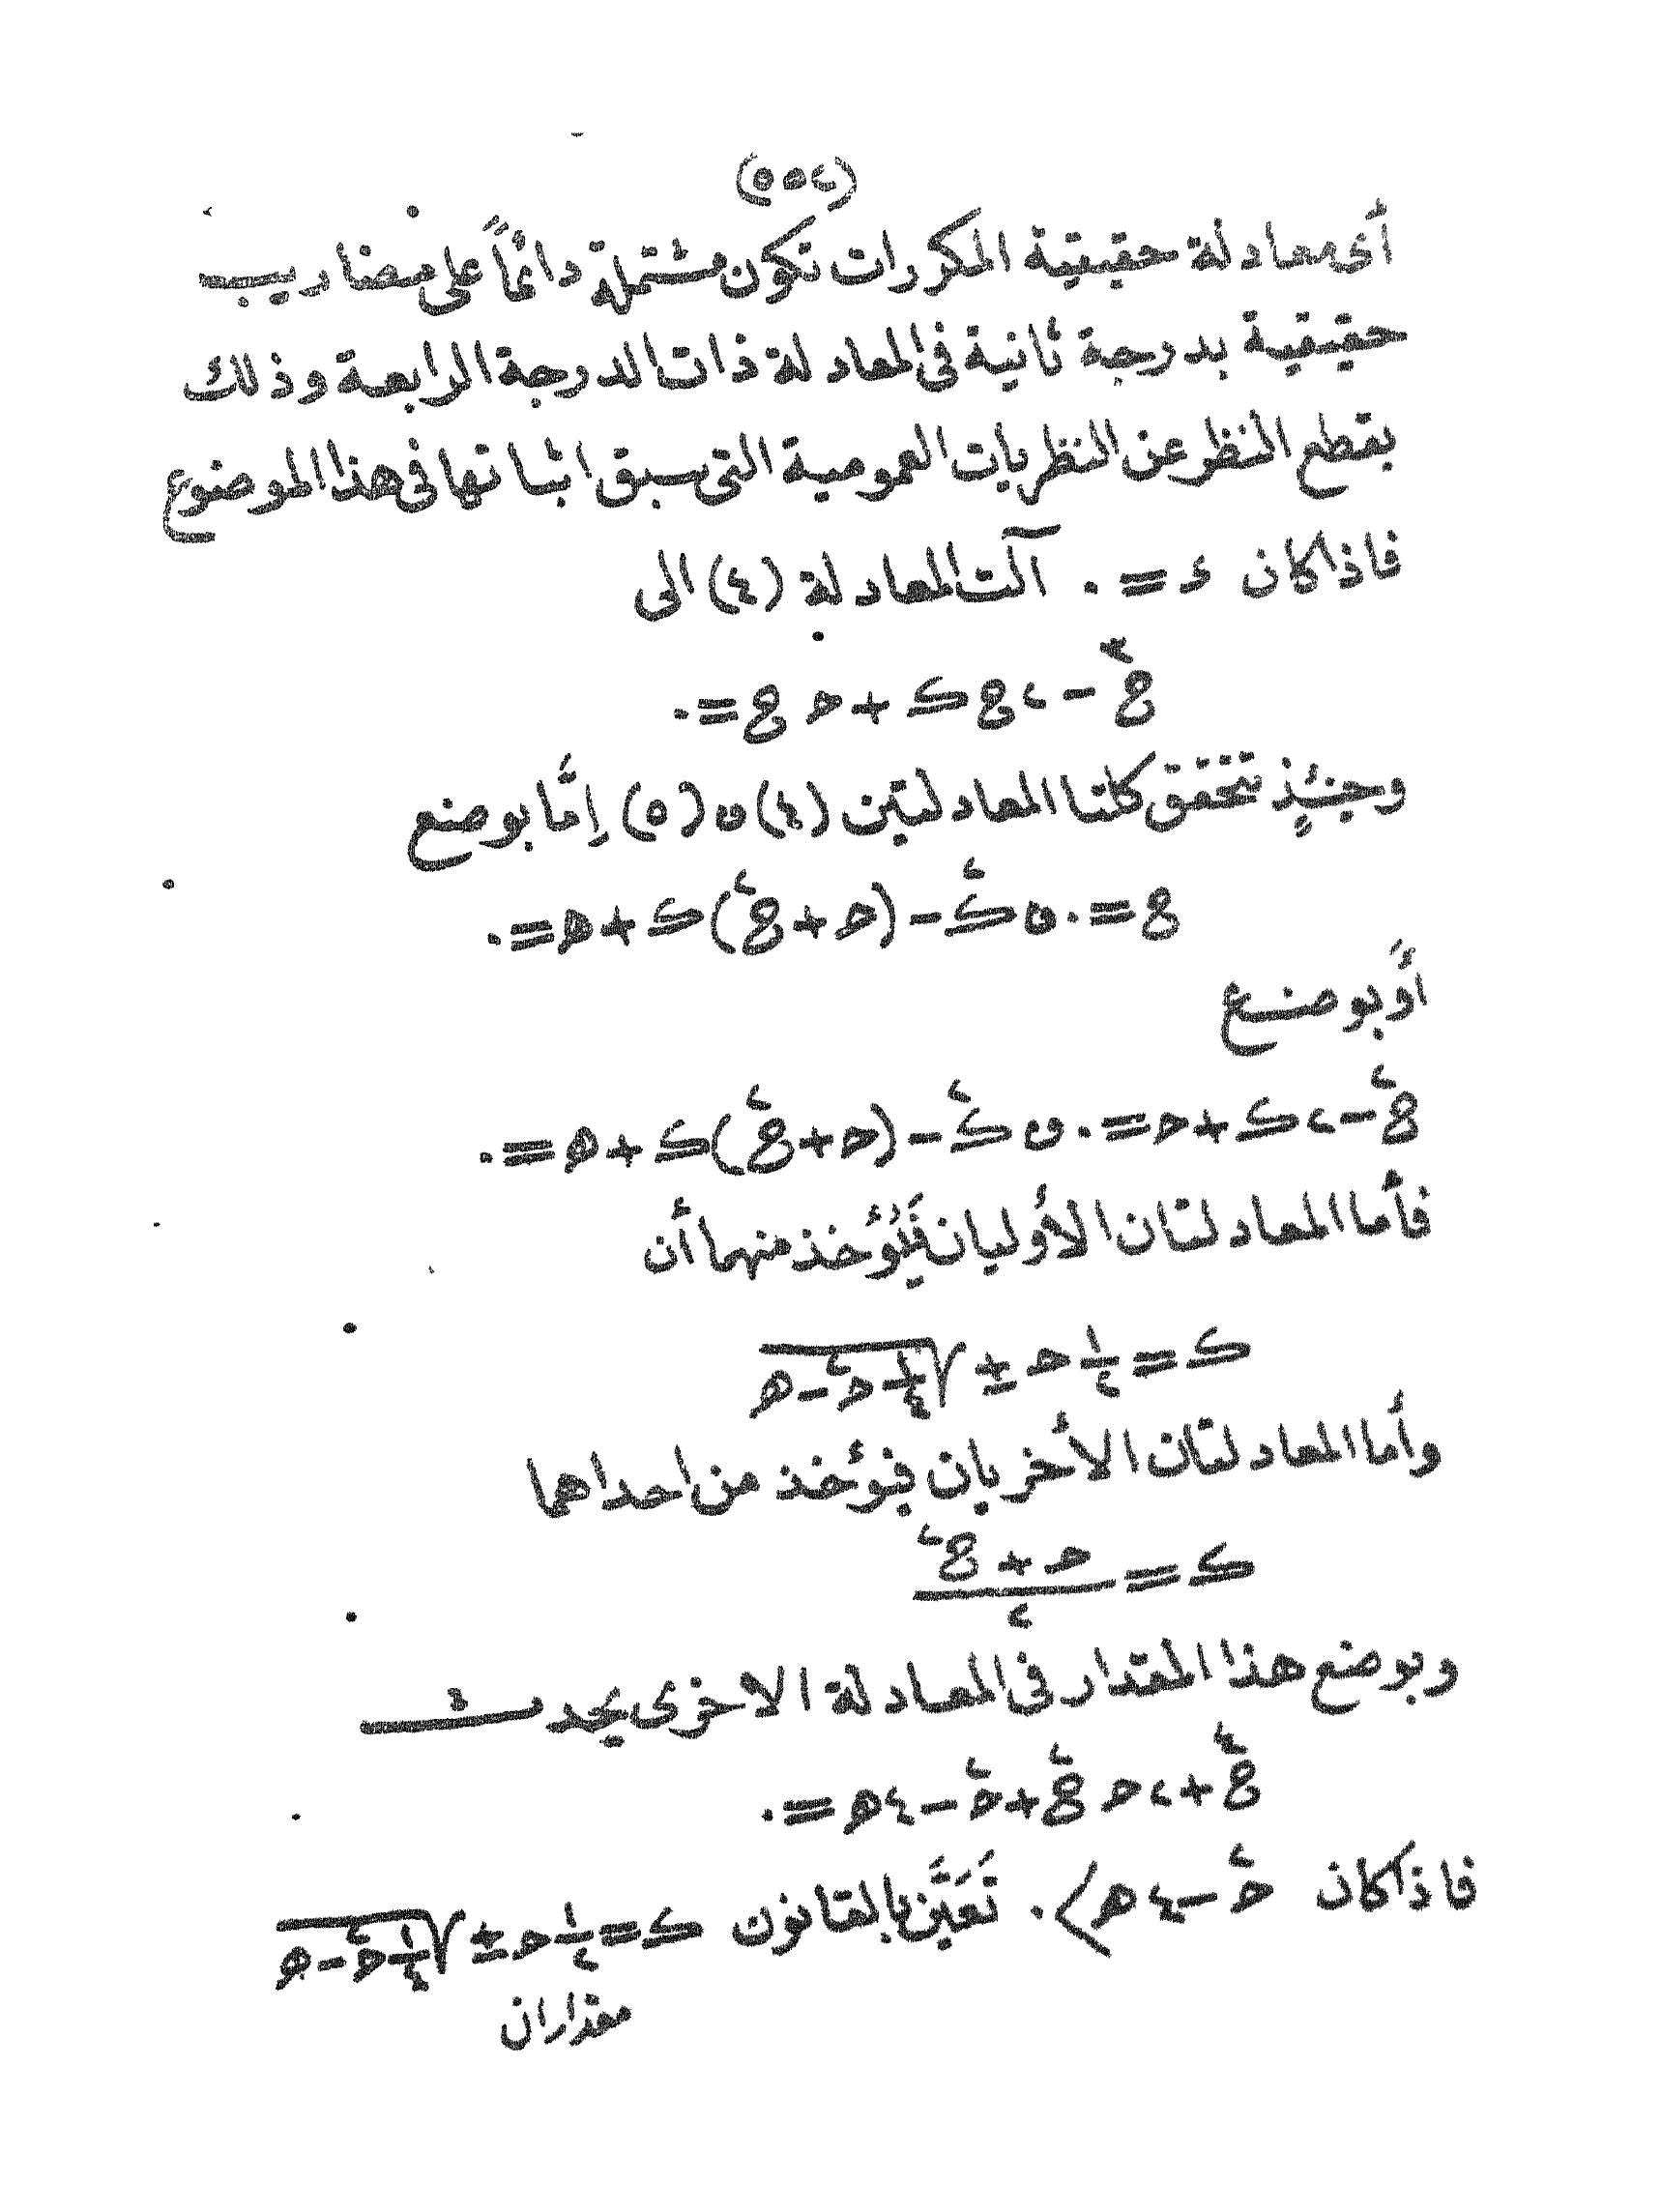 (٥٥٢)
أى معادلة حقيقية المكررات تكون مشتملة دائماً على مضاريب
حقيقية بدرجة ثانية فى المعادلة ذات الدرجة الرابعة وذلك
بقطع النظر عن النظريات العمومية التى سبق اثباتها فى هذا الموضوع
فاذا كان ء = ٠ آلت المعادلة (٤) الى
ع^٣ - ٢ع ك + حـ ع = ٠
وحينئذٍ تتحقق كلتا المعادلتين (٤) و (٥) إمَّا بوضع
ع = ٠ و ك^٢ - (حـ + ع^٢) ك + هـ = ٠
أو بوضع
ع^٢ - ٢ ك + حـ = ٠ و ك^٢ - (حـ + ع^٢) ك + هـ = ٠
فأما المعادلتان الأوليان فَيُؤخذ منهما أن
ك = ١/٢ حـ ± √(١/٤ حـ^٢ - هـ)
وأما المعادلتان الأخريان فيؤخذ من احداهما
ك = (حـ + ع^٢)/٢
وبوضع هذا المقدار فى المعادلة الاخرى يحدث
ع^٤ + ٢ حـ ع^٢ + حـ^٢ - ٤ هـ = ٠
فاذا كان حـ^٢ - ٤ هـ > ٠ تَعَيَّن بالقانون ك = ١/٢ حـ ± √(١/٤ حـ^٢ - هـ)
مقداران